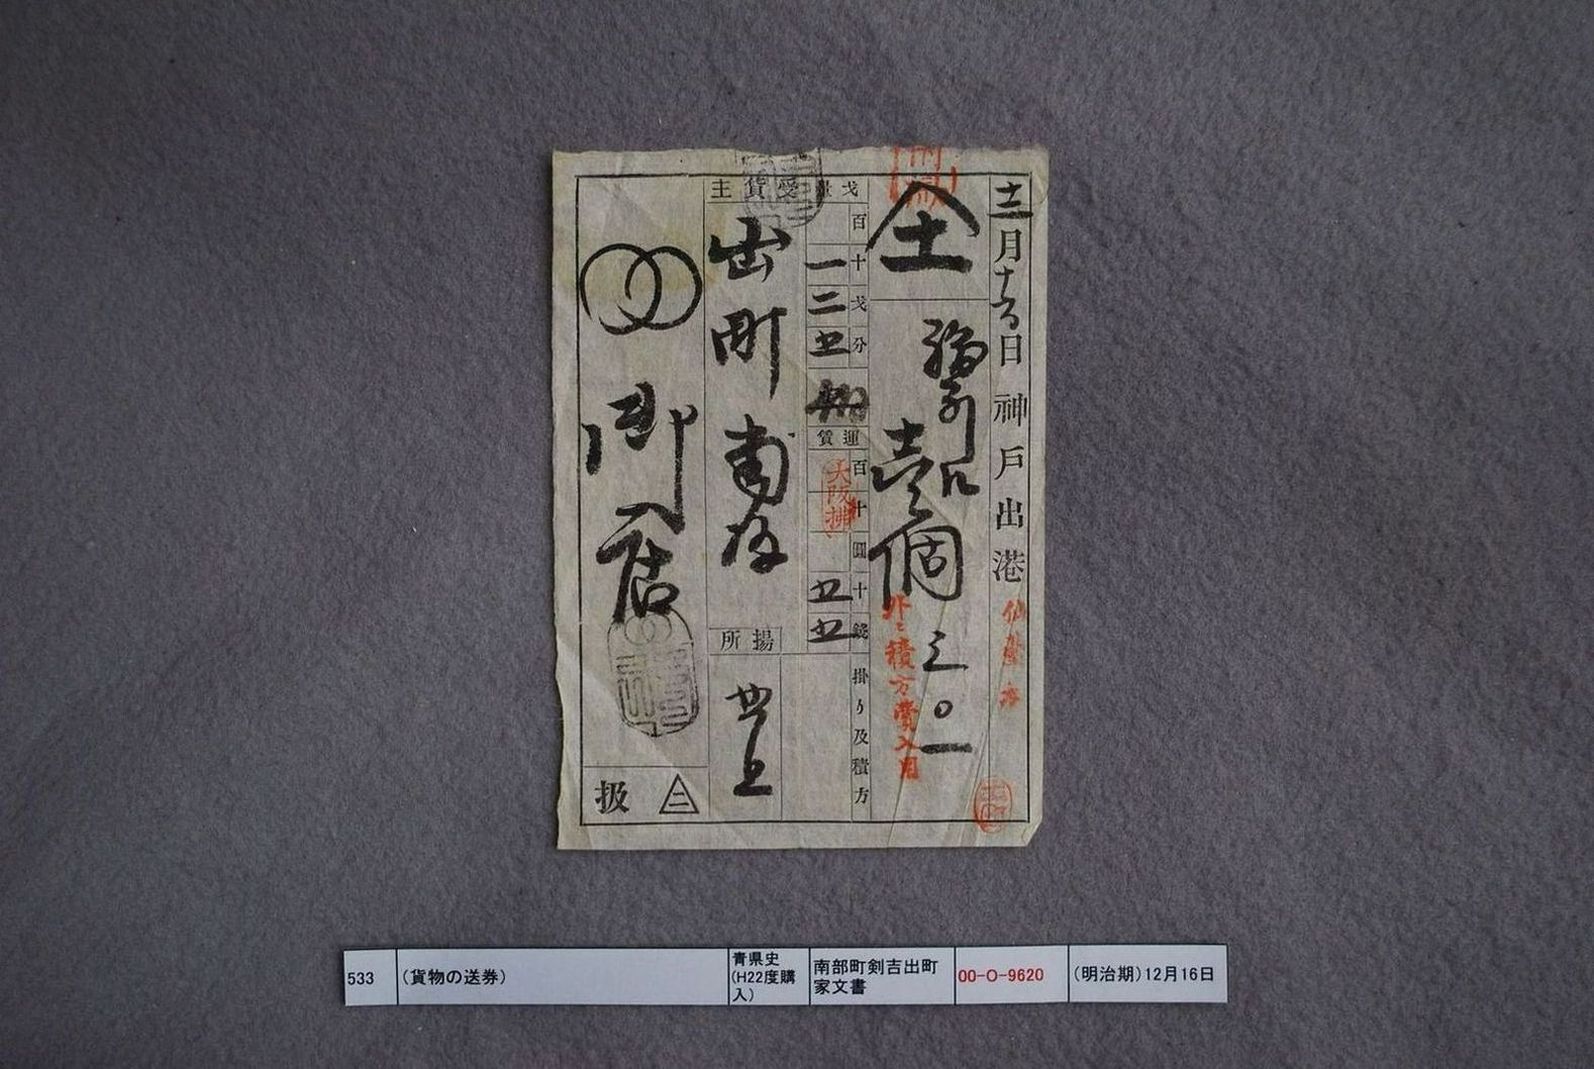 十二月十六日神戸出港
仙台
土
壱個 三〇一
外ニ積方費入用
才量
百十戈分
一二五
運賃
百十圓十銭
大阪拂
五五
掛り及積方
受貨主
出町
揚所
御店
扱
二
533
(貨物の送券)
青県史
(H22度購
入)
南部町剣吉出町
家文書
00-O-9620
(明治期)12月16日